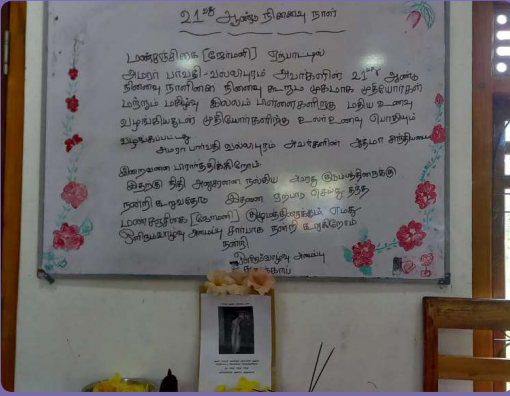 21வது ஆண்டு நினைவு நாள்
மணிச்சிகை [ஜோமனி] ஏற்பாட்டில்
அமரர் பார்வதி - வல்லிபுரம் அவர்களின் 21வது ஆண்டு
நினைவு நாளினை நினைவு கூறும் முகமாக முதியோர்கள்
மற்றும் மகிழ்வு இல்லம் பிள்ளைகளிற்கு மதிய உணவு
வழங்கியதுடன் முதியோர்களிற்கு உலர் உணவு பொதியும்
வழங்கப்பட்டது
அமரர் பார்வதி வல்லிபுரம் அவர்களின் ஆத்மா சாந்தியடைய
இறைவனை பிரார்த்திக்கிறோம்
இதற்கு நிதி அனுசரணை நல்கிய அவரது குடும்பத்தினருக்கு
நன்றி கூறுவதோடு இதனை ஏற்பாடு செய்து தந்த
[ஜோமனி] குடும்பத்தினருக்கும் எமது
ஒளிரும்வாழ்வு அமைப்பு சார்பாக நன்றி கூறுகிறோம்
நன்றி
ஒளிரும்வாழ்வு அமைப்பு